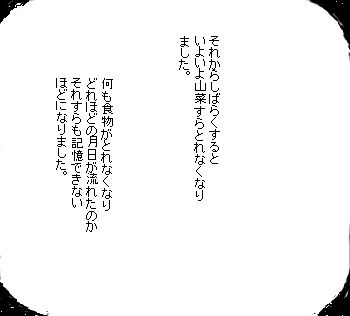 それからしばらくすると
いよいよ山菜すらとれなくなり
ました。
何も食物がとれなくなり
どれほどの月日が流れたのか
それすらも記憶できない
ほどになりました。